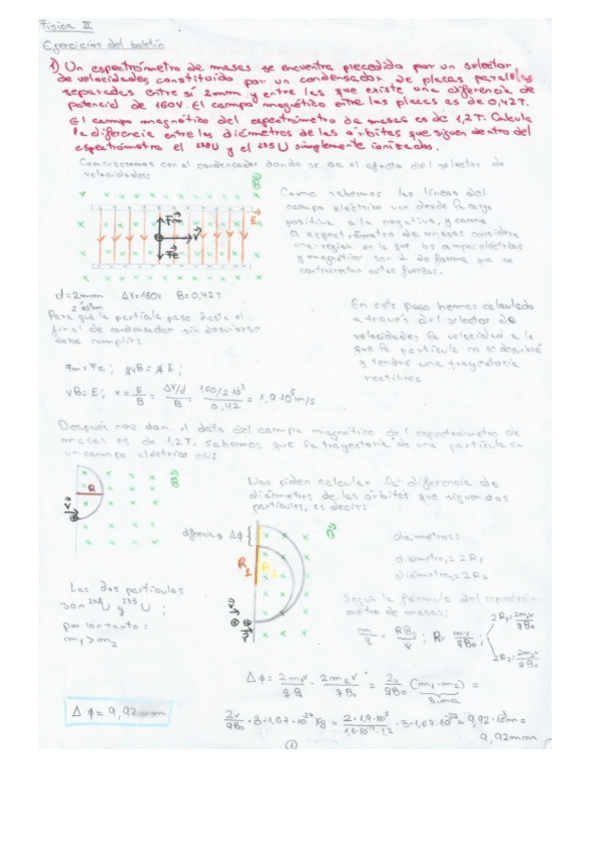 Física II
Ejercicios del boletín
1) Un espectrómetro de masas se encuentra precedido por un selector
de velocidades constituido por un condensador de placas paralelas
separadas entre sí 2mm y entre las que existe una diferencia de
potencial de 160V. El campo magnético entre las placas es de 0,42T.
El campo magnético del espectrómetro de masas es de 1,2T. Calcula
la diferencia entre los diámetros de las órbitas que siguen dentro del
espectrómetro el ²³⁸U y el ²³⁵U simplemente ionizados.
Comenzaremos con el condensador donde se da el efecto del selector de
velocidades:
B
Fm
E
V
Fe
Como sabemos las líneas del
campo eléctrico van desde la carga
positiva a la negativa, y como
el espectrómetro de masas considera
una región en la que los campos eléctricos
y magnético son ⊥ de forma que se
contrarrestan estas fuerzas.
d=2mm ΔV=160V B=0,42T
2·10⁻³m
Para que la partícula pase hasta el
final del condensador sin desviarse
debe cumplir:
Fm=Fe; qvB=qE;
vB=E; v=E/B = ΔV/d / B = 160/2·10⁻³ / 0,42 = 1,9·10⁵m/s
En este paso hemos calculado
a través del selector de
velocidades la velocidad a la
que la partícula no se desviará
y tendrá una trayectoria
rectilínea
Después nos dan el dato del campo magnético del espectrómetro de
masas es de 1,2T. Sabemos que la trayectoria de una partícula en
un campo eléctrico es:
B
R
V
Nos piden calcular la diferencia de
diámetros de las órbitas que siguen dos
partículas, es decir:
Δφ
B
R1
R2
V
diámetros:
diámetro₁=2R₁
diámetro₂=2R₂
Las dos partículas
son ²³⁸U y ²³⁵U;
por lo tanto:
m₁>m₂
Según la fórmula del espectró-
metro de masas:
m/q = RB₀/v; R= mv/qB₀;
2R₁=2m₁v/qB₀
2R₂=2m₂v/qB₀
Δφ= 2m₁v/qB₀ - 2m₂v/qB₀ = 2v/qB₀ (m₁-m₂) =
3·ma
2v/qB₀ ·3·1,67·10⁻²⁷Kg = 2·1,9·10⁵/1,6·10⁻¹⁹·1,2 ·3·1,67·10⁻²⁷ = 9,92·10⁻³m =
9,92mm
Δφ=9,92mm
①